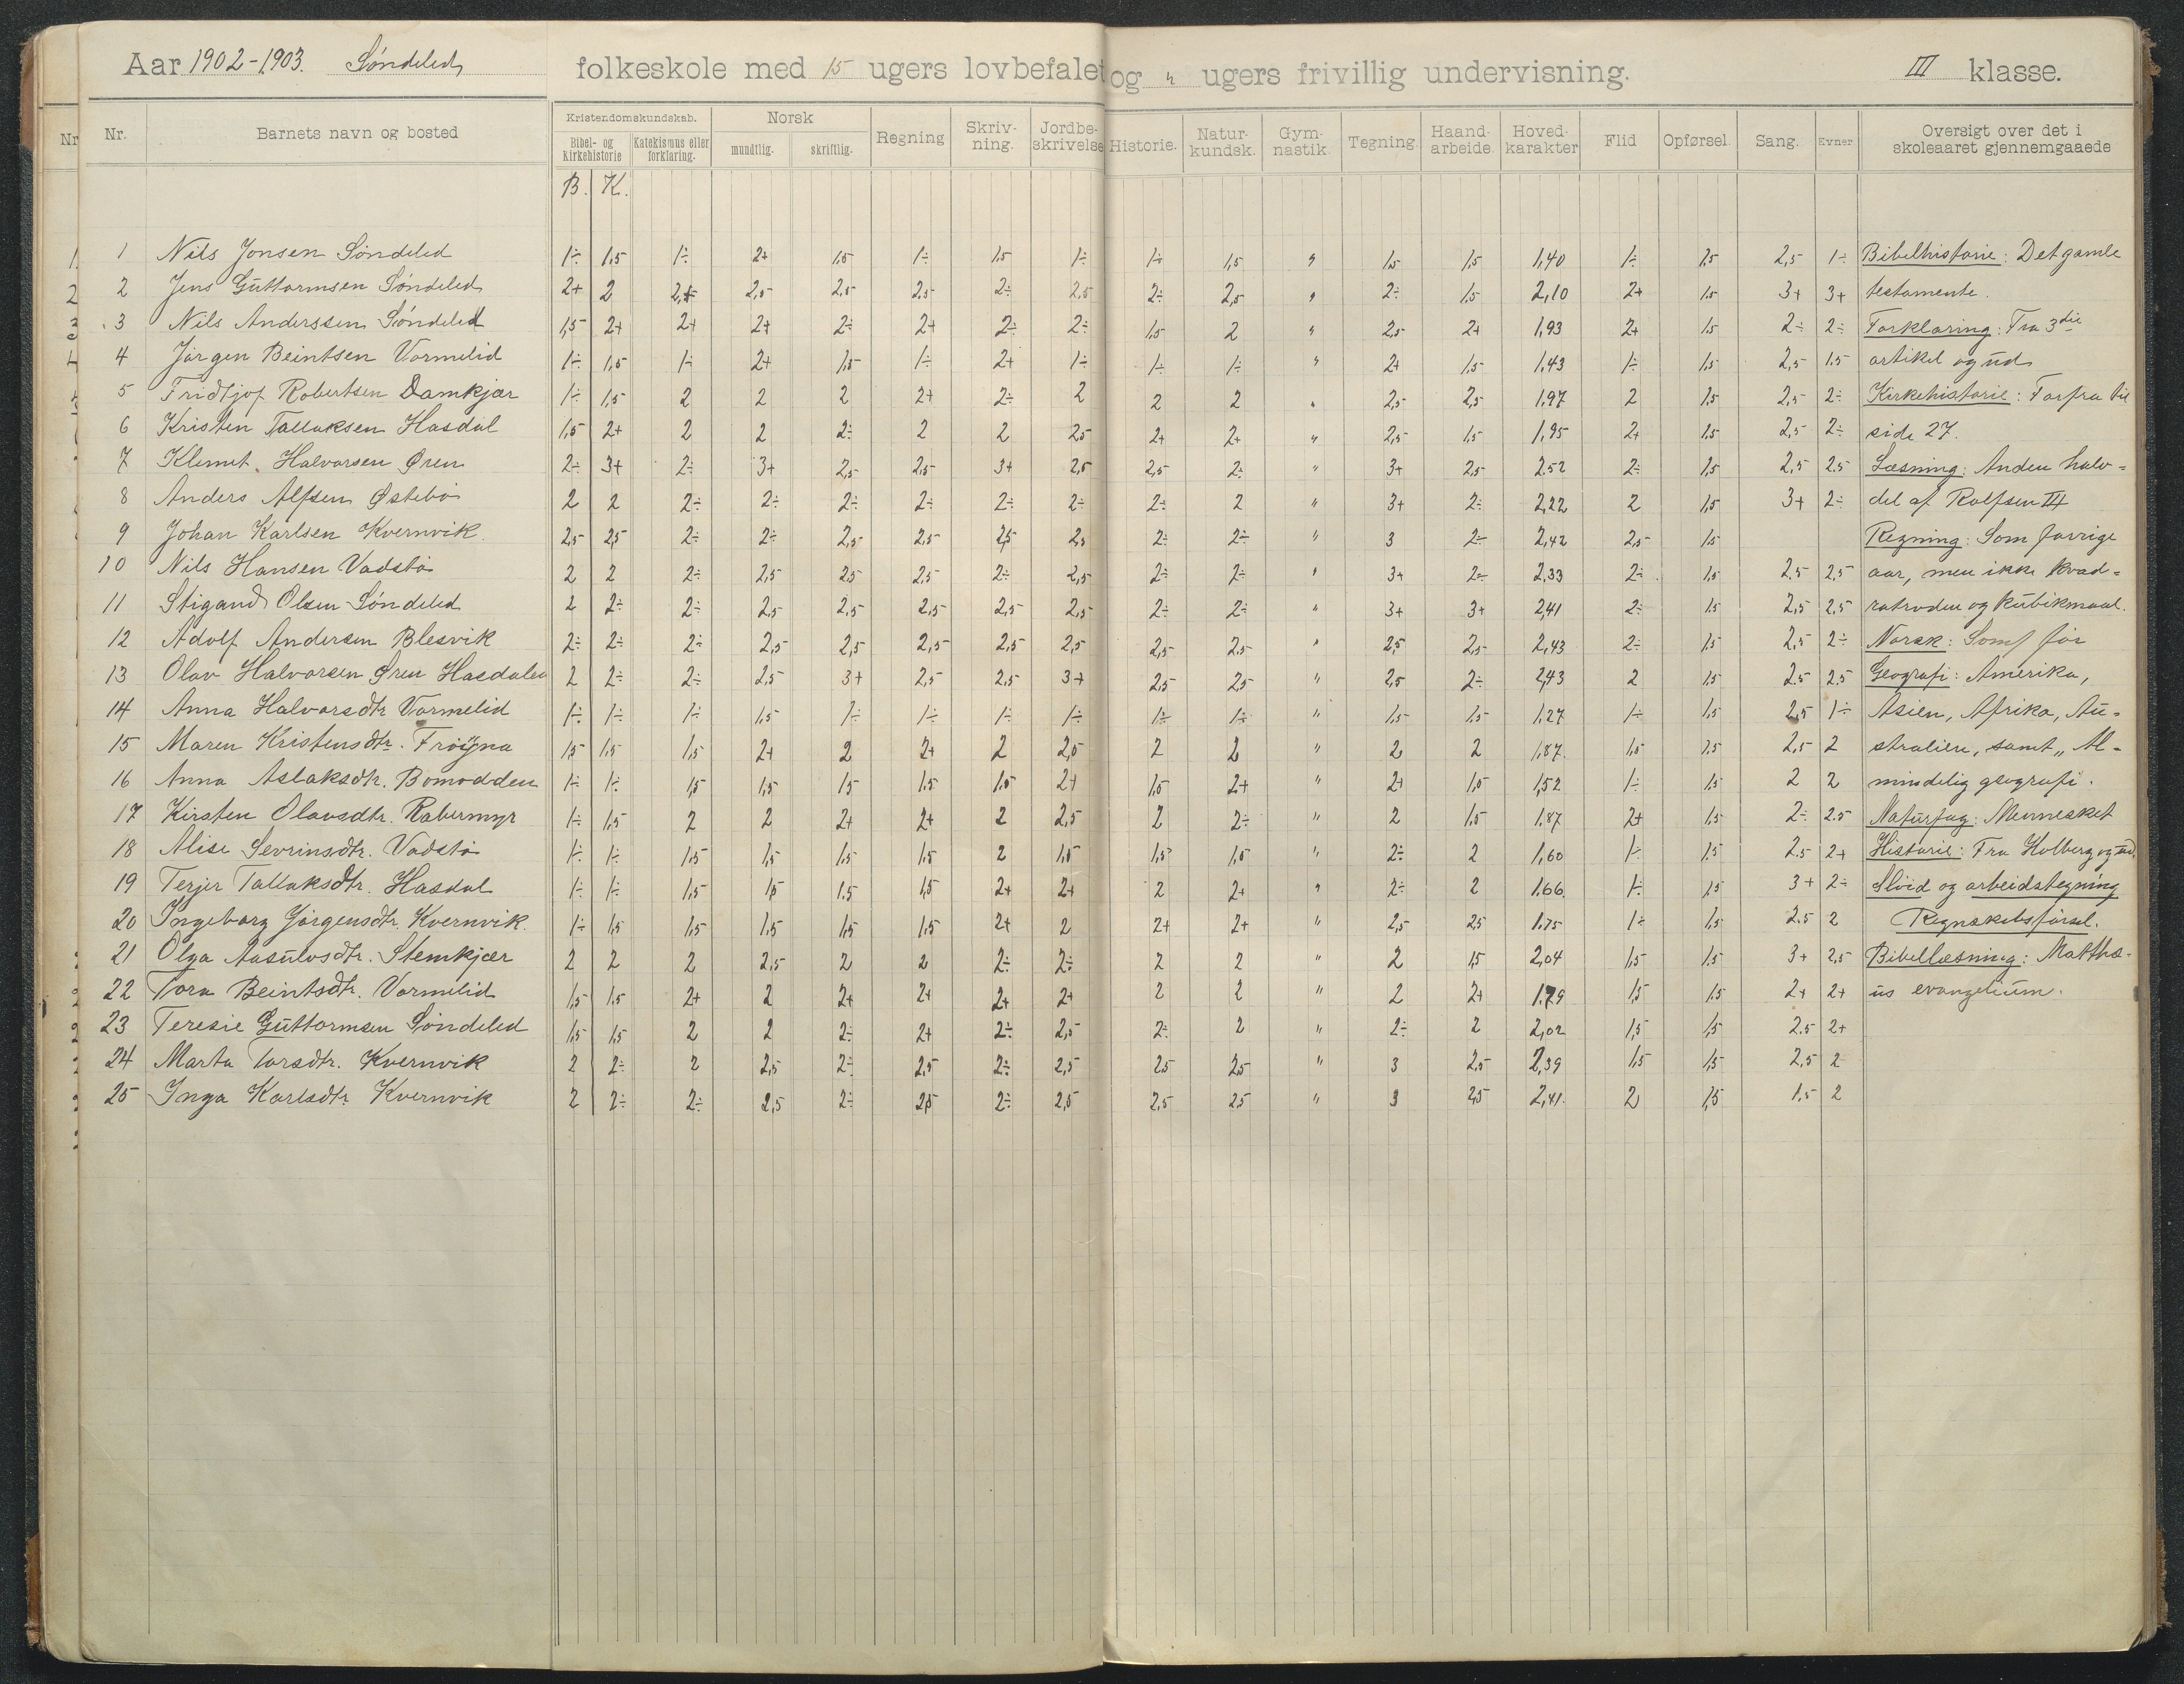 Aar 1902-1903. Søndeled folkeskole med 15 ugers lovbefalet og " ugers frivillig undervisning. III klasse.
Nr. Barnets navn og bosted Kristendomskundskab. Bibel- og kirkehistorie Katekismus eller forklaring. Norsk mundtlig. skriftlig. Regning Skriv-ning. Jordbe-skrivelse Historie. Natur-kundsk. Gym-nastik Tegning. Haand-arbeide. Hoved-karakter Flid Opførsel. Sang. Evner Oversigt over det i skoleaaret gjennemgaaede
B. K.
1 Nils Jonsen Søndeled 1÷ 1,5 1÷ 2+ 1,5 1÷ 1,5 1÷ 1÷ 1,5 " 1,5 1,5 1,40 1÷ 1,5 2,5 1÷ Bibelhistorie: Det gamle
2 Jens Guttormsen Søndeled 2+ 2 2,5 2,5 2,5 2,5 2÷ 2,5 2÷ 2,5 " 2÷ 1,5 2,10 2+ 1,5 3+ 3+ testamente.
3 Nils Anderssen Søndeled 1,5 2+ 2+ 2+ 2÷ 2+ 2÷ 2÷ 1,5 2 " 2,5 2+ 1,93 2+ 1,5 2÷ 2÷ Forklaring: Fra 3die
4 Jørgen Beintsen Vormelid 1÷ 1,5 1÷ 2+ 1,5 1÷ 2+ 1÷ 1÷ 1÷ " 2+ 1,5 1,43 1÷ 1,5 2,5 1.5 artikel og ud
5 Fridtjof Robertsen Damkjær 1÷ 1,5 2 2 2 2+ 2÷ 2 2 2 " 2,5 2,5 1,97 2 1,5 2,5 2÷ Kirkehistorie: Forfra til
6 Kristen Tallaksen Hasdal 1,5 2+ 2 2 2÷ 2 2 2,5 2+ 2+ " 2,5 1,5 1,95 2+ 1,5 2,5 2÷ side 27.
7 Klemet Halvorsen Øren 2÷ 3+ 2÷ 3+ 2,5 2,5 3+ 2,5 2,5 2÷ " 3+ 2,5 2,52 2÷ 1,5 2,5 2.5 Læsning: Anden halv=
8 Anders Alfsen Østebø 2 2 2÷ 2÷ 2÷ 2÷ 2÷ 2÷ 2÷ 2 " 3+ 2÷ 2,22 2 1,5 3+ 2÷ del af Rolfsen III
9 Johan Karlsen Kvernvik. 2,5 2,5 2÷ 2÷ 2,5 2,5 2,5 2,5 2÷ 2÷ " 3 2÷ 2,42 2,5 1,5 Regning: Som forrige
10 Nils Hansen Vadstø 2 2 2÷ 2,5 2,5 2,5 2÷ 2,5 2÷ 2÷ " 3+ 2÷ 2,33 2÷ 1,5 2,5 2,5 aar, men ikke kvad=
11 Stigand Olsen Søndeled 2 2÷ 2÷ 2,5 2,5 2,5 2,5 2,5 2÷ 2÷ " 3+ 3+ 2,41 2÷ 1,5 2,5 2,5 ratroden og kubikmaal.
12 Adolf Andersen Blesvik 2÷ 2÷ 2÷ 2,5 2,5 2,5 2,5 2,5 2,5 2,5 " 2,5 2,5 2,43 2÷ 1,5 2,5 2÷ Norsk: Som før
13 Olav Halvorsen Øren Hasdalen 2 2÷ 2÷ 2,5 3+ 2,5 2,5 3+ 2,5 2,5 " 2,5 2÷ 2,43 2 1,5 2.5 2,5 Geografi: Amerika,
14 Anna Halvorsdtr Vormelid 1÷ 1÷ 1÷ 1,5 1÷ 1÷ 1÷ 1÷ 1÷ 1÷ " 1,5 1,5 1,27 1÷ 1,5 2,5 1÷ Asien, Afrika, Au=
15 Maren Kristensdtr. Frøyna 1,5 1,5 1,5 2+ 2 2+ 2 2,5 2 2 " 2 2 1,87 1,5 1,5 2,5 2 stralien, samt „Al-
16 Anna Aslaksdtr. Bomodden 1÷ 1÷ 1,5 1,5 1,5 1,5 1,5 2+ 1,5 2+ " 2+ 1,5 1,52 1÷ 1,5 2 2 mindelig geografi.
17 Kirsten Olavsdtr. Røbermyr 1÷ 1,5 2 2 2+ 2+ 2 2,5 2 2÷ " 2 1,5 1,87 2+ 1,5 2÷ 2.5 Naturfag: Mennesket
18 Alise Sevrinsdtr. Vadstø 1÷ 1÷ 1,5 1,5 1,5 1,5 2 1,5 1,5 1,5 " 2÷ 2 1,60 1÷ 1,5 2.5 2+ Historie: Fra Holberg og ud.
19 Terjer Tallaksdtr. Hasdal 1÷ 1÷ 1,5 1,5 1.5 1,5 2+ 2+ 2 2+ " 2÷ 2 1.66 1÷ 1,5 3+ 2÷ Sløid og arbeidstegning
20 Ingeborg Jørgensdtr. Kvernvik. 1÷ 1,5 1,5 1,5 1,5 1,5 2+ 2 2+ 2+ " 2,5 2,5 1.75 1÷ 1,5 2.5 2 Regnskabsførsel.
21 Olga Aasulvsdtr. Stemkjær 2 2 2 2,5 2 2 2÷ 2÷ 2 2 " 2 1,5 2,04 1,5 1,5 3+ 2,5 Bibellæsning: Matthæ-
22 Tora Beintsdtr. Vormelid 1,5 1,5 2+ 2 2+ 2+ 2+ 2+ 2 2 " 2 2+ 1.79 1,5 1,5 2+ 2+ us evangelium.
23 Teresie Guttormsen Søndeled 1,5 1,5 2 2 2÷ 2+ 2÷ 2,5 2÷ 2 " 2÷ 2 2,02 1,5 1,5 2.5 2+
24 Marta Torsdtr. Kvernvik 2 2÷ 2 2,5 2÷ 2,5 2÷ 2,5 2,5 2,5 " 3 2,5 2,39 1,5 1,5 2,5 2
25 Inga Karlsdtr. Kvernvik 2 2÷ 2÷ 2,5 2÷ 2,5 2÷ 2,5 2,5 2,5 " 3 2,5 2,41 2 1,5 1.5 2